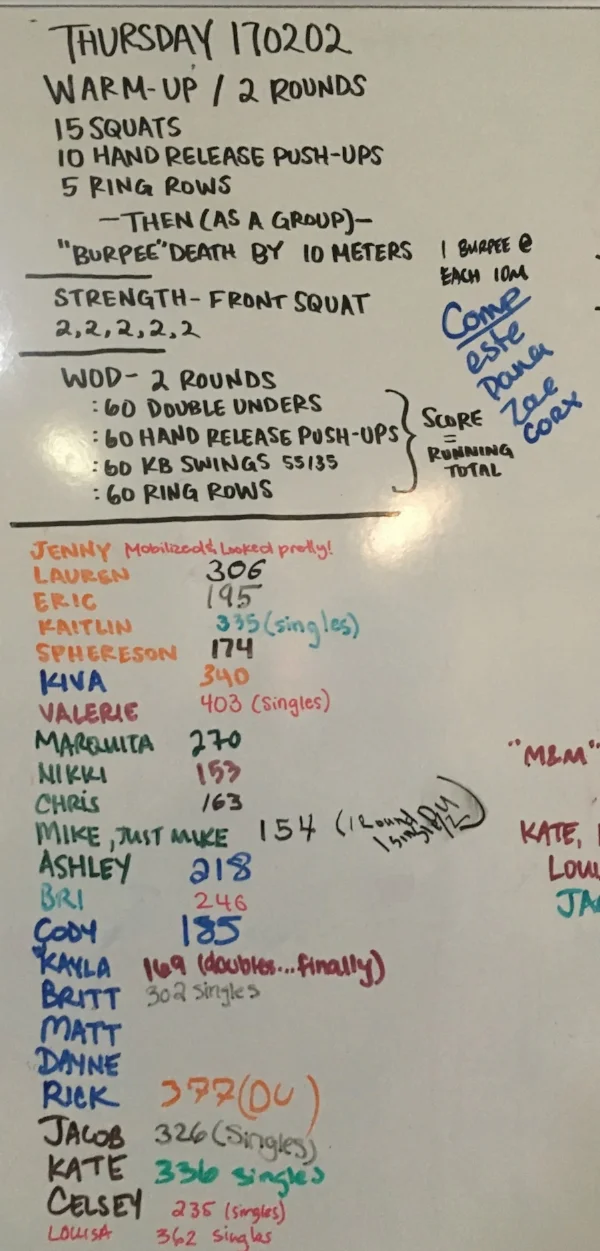 THURSDAY 170202
WARM-UP / 2 ROUNDS
15 SQUATS
10 HAND RELEASE PUSH-UPS
5 RING ROWS
—THEN (AS A GROUP)—
"BURPEE" DEATH BY 10 METERS
1 BURPEE @
EACH 10M
STRENGTH - FRONT SQUAT
2,2,2,2,2
Comp
este
Dana
Zae
CORX
WOD - 2 ROUNDS
:60 DOUBLE UNDERS
:60 HAND RELEASE PUSH-UPS
:60 KB SWINGS 55/35
:60 RING ROWS
SCORE
=
RUNNING
TOTAL
JENNY Mobilized & Looked pretty!
LAUREN 306
ERIC 195
KAITLIN 335 (singles)
SPHERESON 174
KIVA 340
VALERIE 403 (singles)
MARQUITA 270
NIKKI 153
CHRIS 163
MIKE, JUST MIKE 154 (1 Round DU
1 singles)
ASHLEY 218
BRI 246
CODY 185
KAYLA 169 (doubles...finally)
BRITT 302 singles
MATT
DAYNE
RICK 377 (DU)
JACOB 326 (Singles)
KATE 336 singles
CELSEY 235 (singles)
LOUISA 362 singles
"M&M"
KATE,